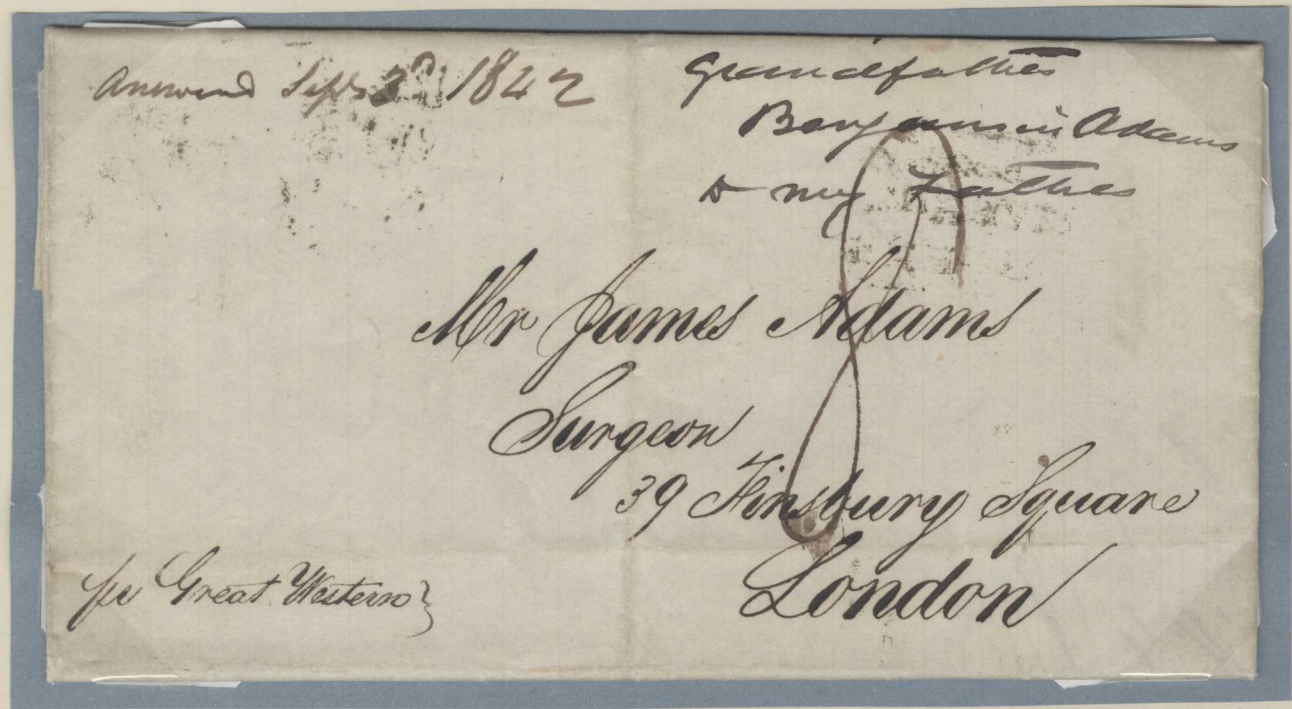 Answered Sept 3d 1842
Grandfather
Benjamin Adams
to my Father
8
Mr James Adams
Surgeon
39 Finsbury Square
London
per Great Western